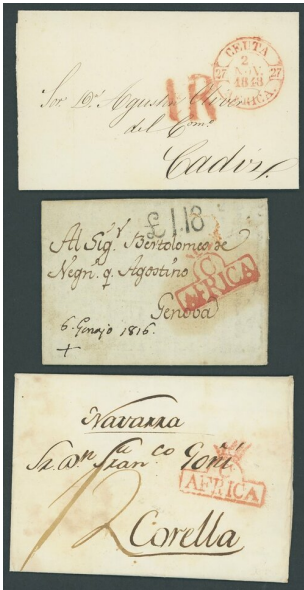 CEUTA
2
27 27
1843
AFRICA.
1R
Sor. Dn. Agustin
del Com.º
Cadiz.
£1.18
Al Sig.r Bertolomeo de
Negri. q. Agostino
AFRICA
Genoba
6. Genajo 1816.
+
Navarra
Sr. Dn Fran.co Goñi
AFRICA
12
Corella